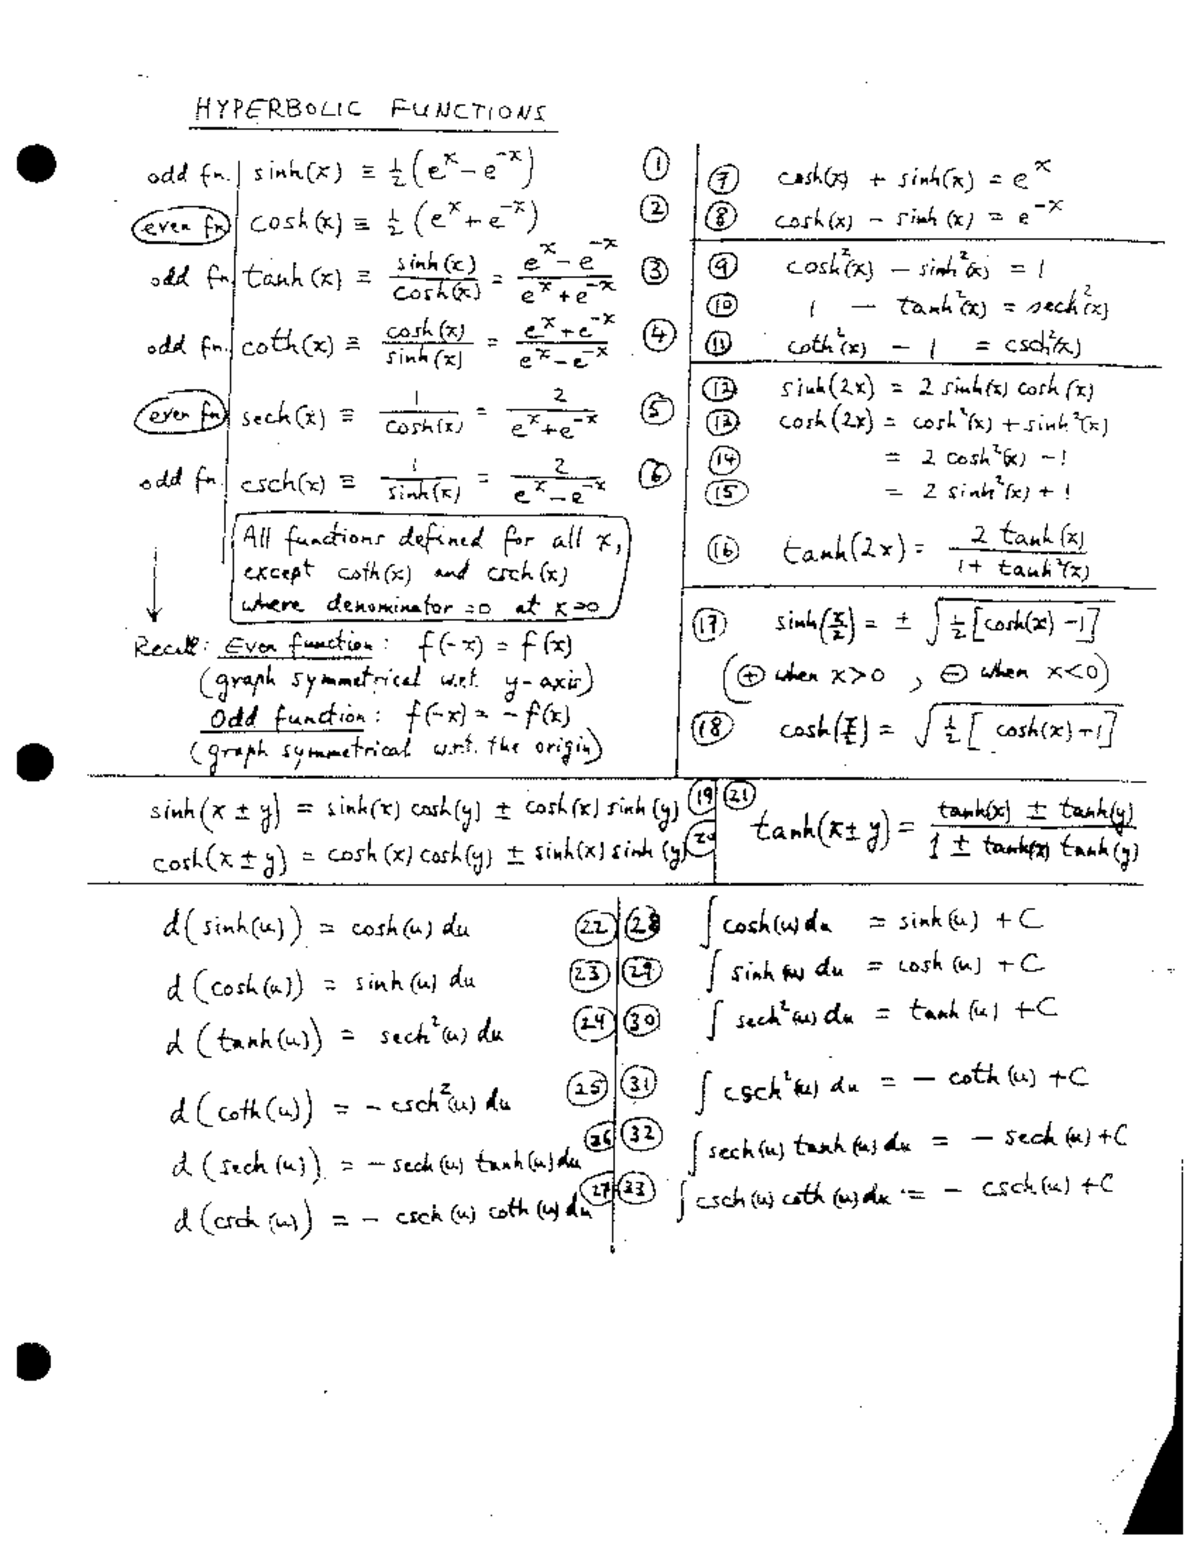 HYPERBOLIC FUNCTIONS
odd fn. sinh(x) ≡ ½(e^x − e^−x) ①
even fn cosh(x) ≡ ½(e^x + e^−x) ②
odd fn. tanh(x) ≡ sinh(x)/cosh(x) = (e^x − e^−x)/(e^x + e^−x) ③
odd fn. coth(x) ≡ cosh(x)/sinh(x) = (e^x + e^−x)/(e^x − e^−x) ④
even fn sech(x) ≡ 1/cosh(x) = 2/(e^x + e^−x) ⑤
odd fn. csch(x) ≡ 1/sinh(x) = 2/(e^x − e^−x) ⑥
All functions defined for all x,
except coth(x) and csch(x)
where denominator =0 at x=0
Recall: Even function: f(−x) = f(x)
(graph symmetrical w.r.t. y-axis)
Odd function: f(−x) = − f(x)
(graph symmetrical w.r.t. the origin)
⑦ cosh(x) + sinh(x) = e^x
⑧ cosh(x) − sinh(x) = e^−x
⑨ cosh²(x) − sinh²(x) = 1
⑩ 1 − tanh²(x) = sech²(x)
⑪ coth²(x) − 1 = csch²(x)
⑫ sinh(2x) = 2 sinh(x) cosh(x)
⑬ cosh(2x) = cosh²(x) + sinh²(x)
⑭ = 2 cosh²(x) − 1
⑮ = 2 sinh²(x) + 1
⑯ tanh(2x) = 2 tanh(x)/(1 + tanh²(x))
⑰ sinh(x/2) = ± √(½[cosh(x) − 1])
(⊕ when x>0 , ⊖ when x<0)
⑱ cosh(x/2) = √(½[cosh(x) + 1])
sinh(x ± y) = sinh(x) cosh(y) ± cosh(x) sinh(y) ⑲
cosh(x ± y) = cosh(x) cosh(y) ± sinh(x) sinh(y) ⑳
㉑ tanh(x ± y) = (tanh(x) ± tanh(y))/(1 ± tanh(x) tanh(y))
d(sinh(u)) = cosh(u) du ㉒
d(cosh(u)) = sinh(u) du ㉓
d(tanh(u)) = sech²(u) du ㉔
d(coth(u)) = − csch²(u) du ㉕
d(sech(u)) = − sech(u) tanh(u) du ㉖
d(csch(u)) = − csch(u) coth(u) du ㉗
㉘ ∫ cosh(u) du = sinh(u) + C
㉙ ∫ sinh(u) du = cosh(u) + C
㉚ ∫ sech²(u) du = tanh(u) + C
㉛ ∫ csch²(u) du = − coth(u) + C
㉜ ∫ sech(u) tanh(u) du = − sech(u) + C
㉝ ∫ csch(u) coth(u) du = − csch(u) + C